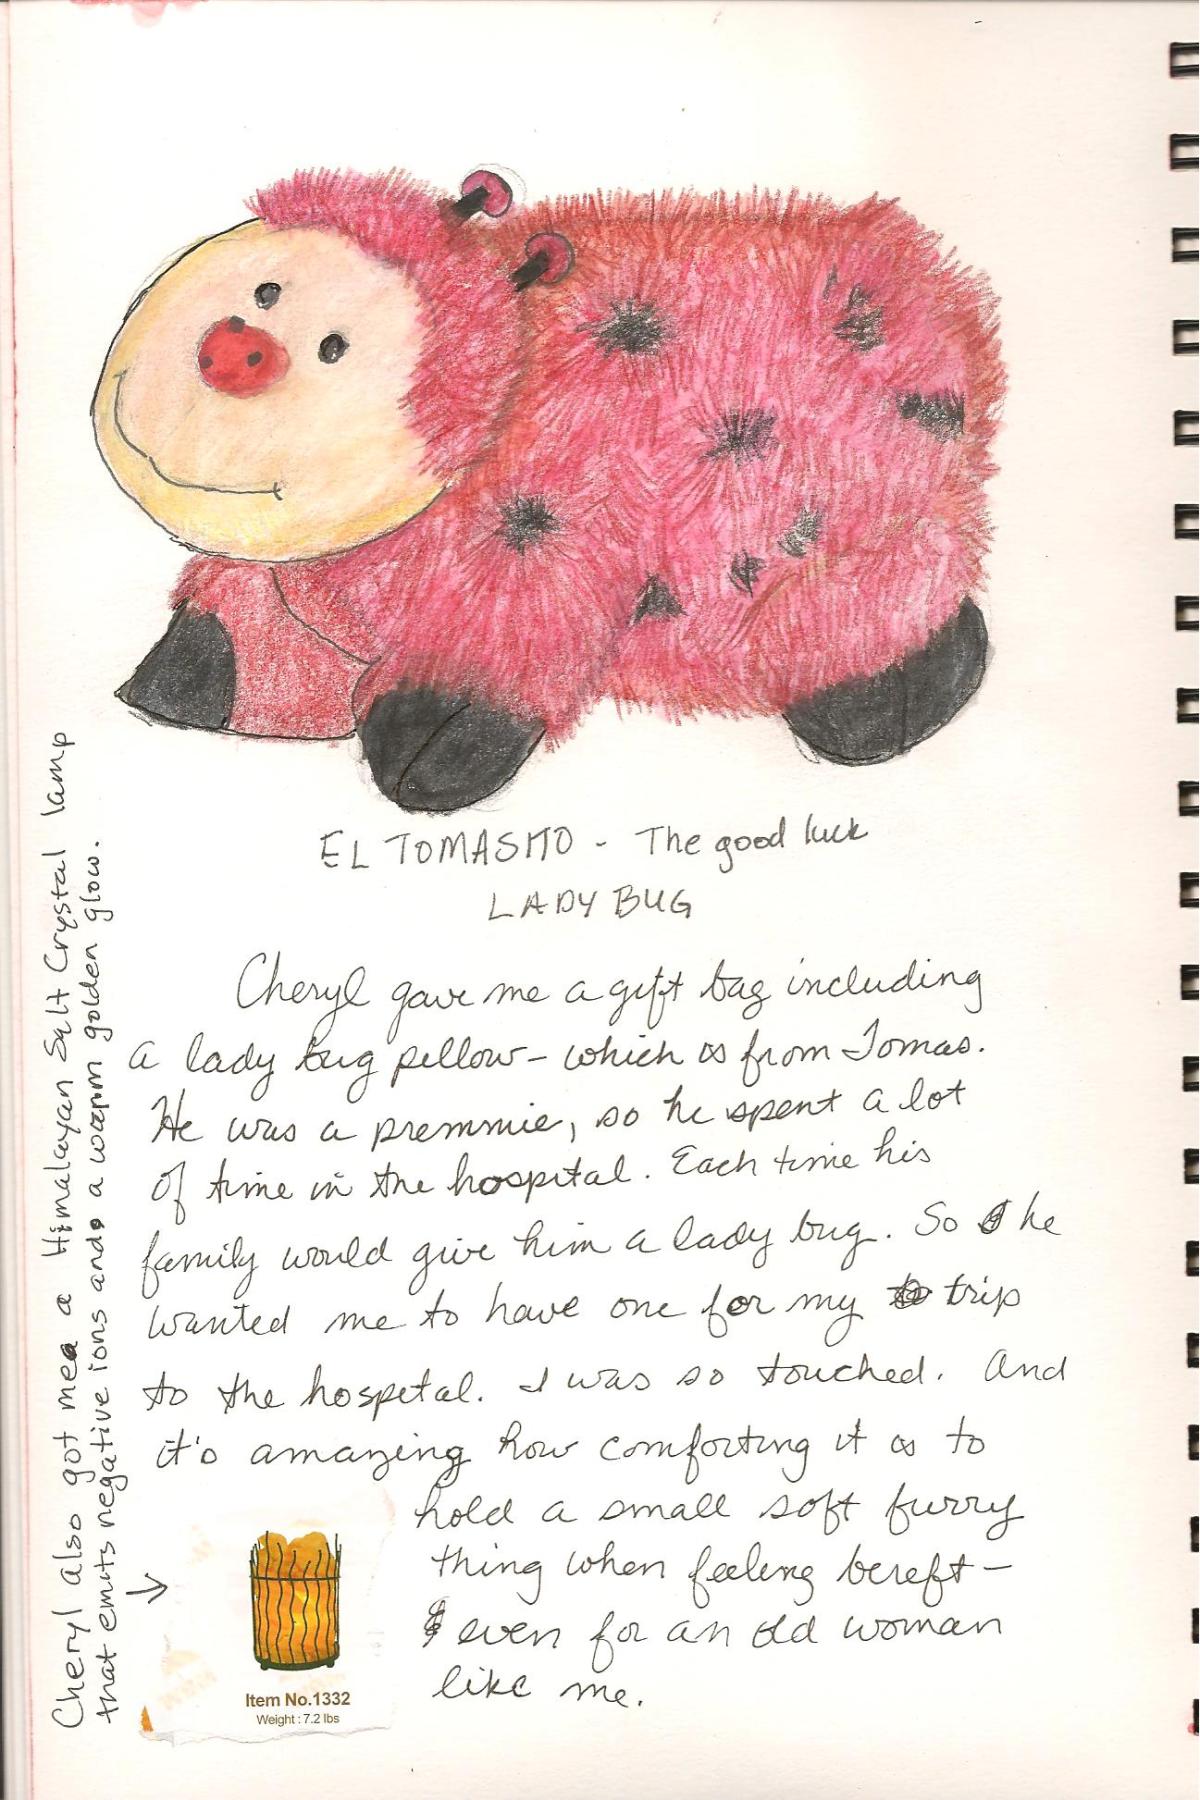 EL TOMASITO - The good luck
LADY BUG
Cheryl gave me a gift bag including
a lady bug pillow - which is from Tomas.
He was a premmie, so he spent a lot
of time in the hospital. Each time his
family would give him a lady bug. So he
wanted me to have one for my trip
to the hospital. I was so touched. And
it's amazing how comforting it is to
hold a small soft furry
thing when feeling bereft -
even for an old woman
like me.
Cheryl also got me a Himalayan Salt Crystal lamp
that emits negative ions and a warm golden glow.
Item No.1332
Weight : 7.2 lbs